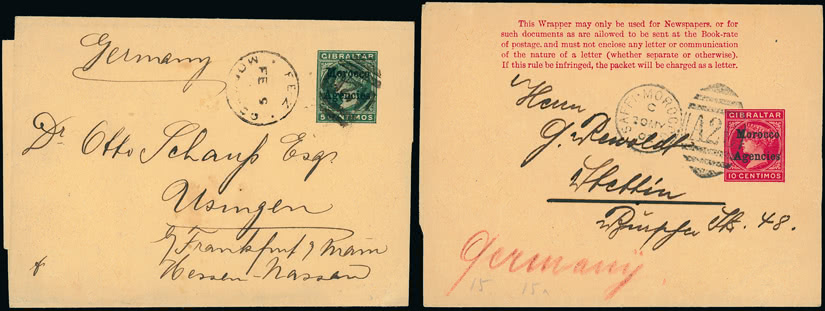 Germany
GIBRALTAR
Morocco
Agencies
5 CENTIMOS
FEZ
FE 5
Dr Otto Schauss Esq
Usingen
Frankfurt Main
Hessen-Nassau
This Wrapper may only be used for Newspapers, or for
such documents as are allowed to be sent at the Book-rate
of postage, and must not enclose any letter or communication
of the nature of a letter (whether separate or otherwise).
If this rule be infringed, the packet will be charged as a letter.
SAFFI-MOROCCO
C
A26
GIBRALTAR
Morocco
Agencies
10 CENTIMOS
Herrn
G. Rewoldt
Stettin
Str. 48.
Germany
15 15